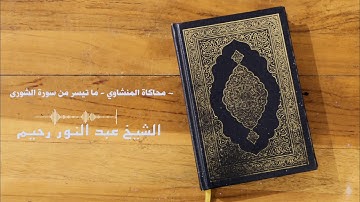 – محاكاة المنشاوي - ما تيسر من سورة الشورى
الشيخ عبد النور رحيم